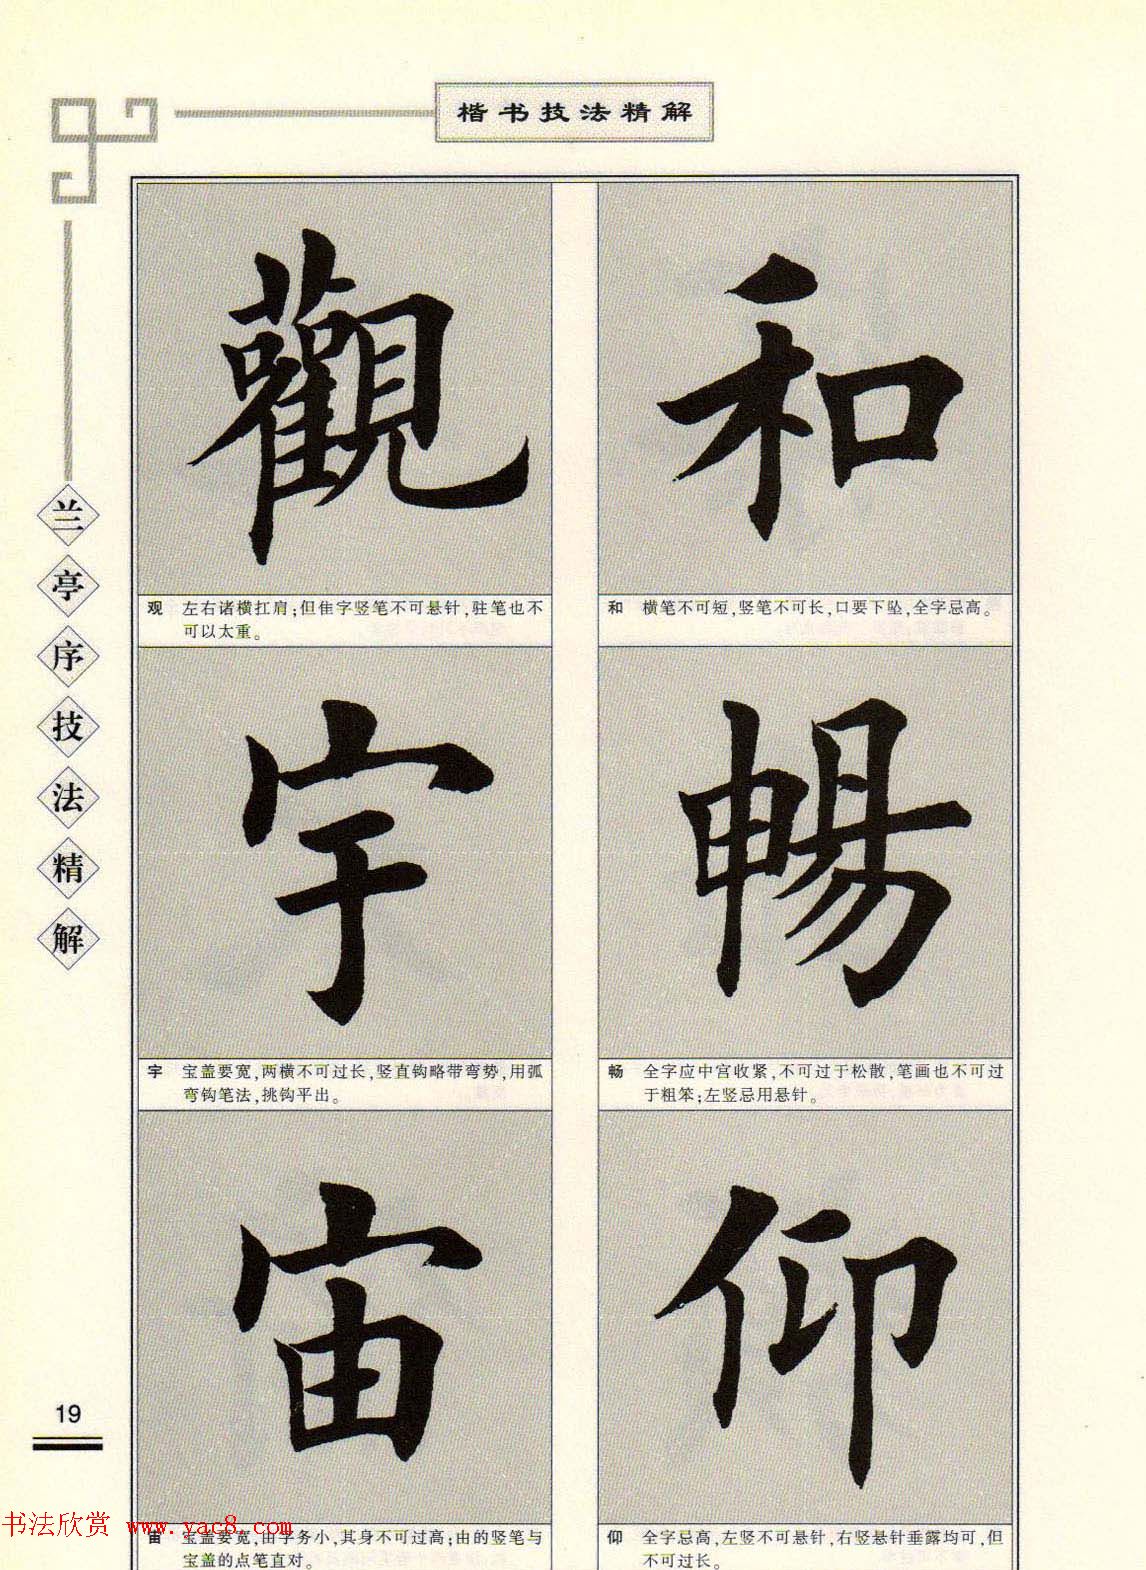 楷书技法精解
兰亭序技法精解
和
和 横笔不可短,竖笔不可长,口要下坠,全字忌高。
暢
畅 全字应中宫收紧,不可过于松散,笔画也不可过
于粗笨;左竖忌用悬针。
仰
仰 全字忌高,左竖不可悬针,右竖悬针垂露均可,但
不可过长。
觀
观 左右诸横扛肩;但隹字竖笔不可悬针,驻笔也不
可以太重。
宇
宇 宝盖要宽,两横不可过长,竖直钩略带弯势,用弧
弯钩笔法,挑钩平出。
宙
宙 宝盖要宽,由字务小,其身不可过高;由的竖笔与
宝盖的点笔直对。
19
书法欣赏 www.yac8.com